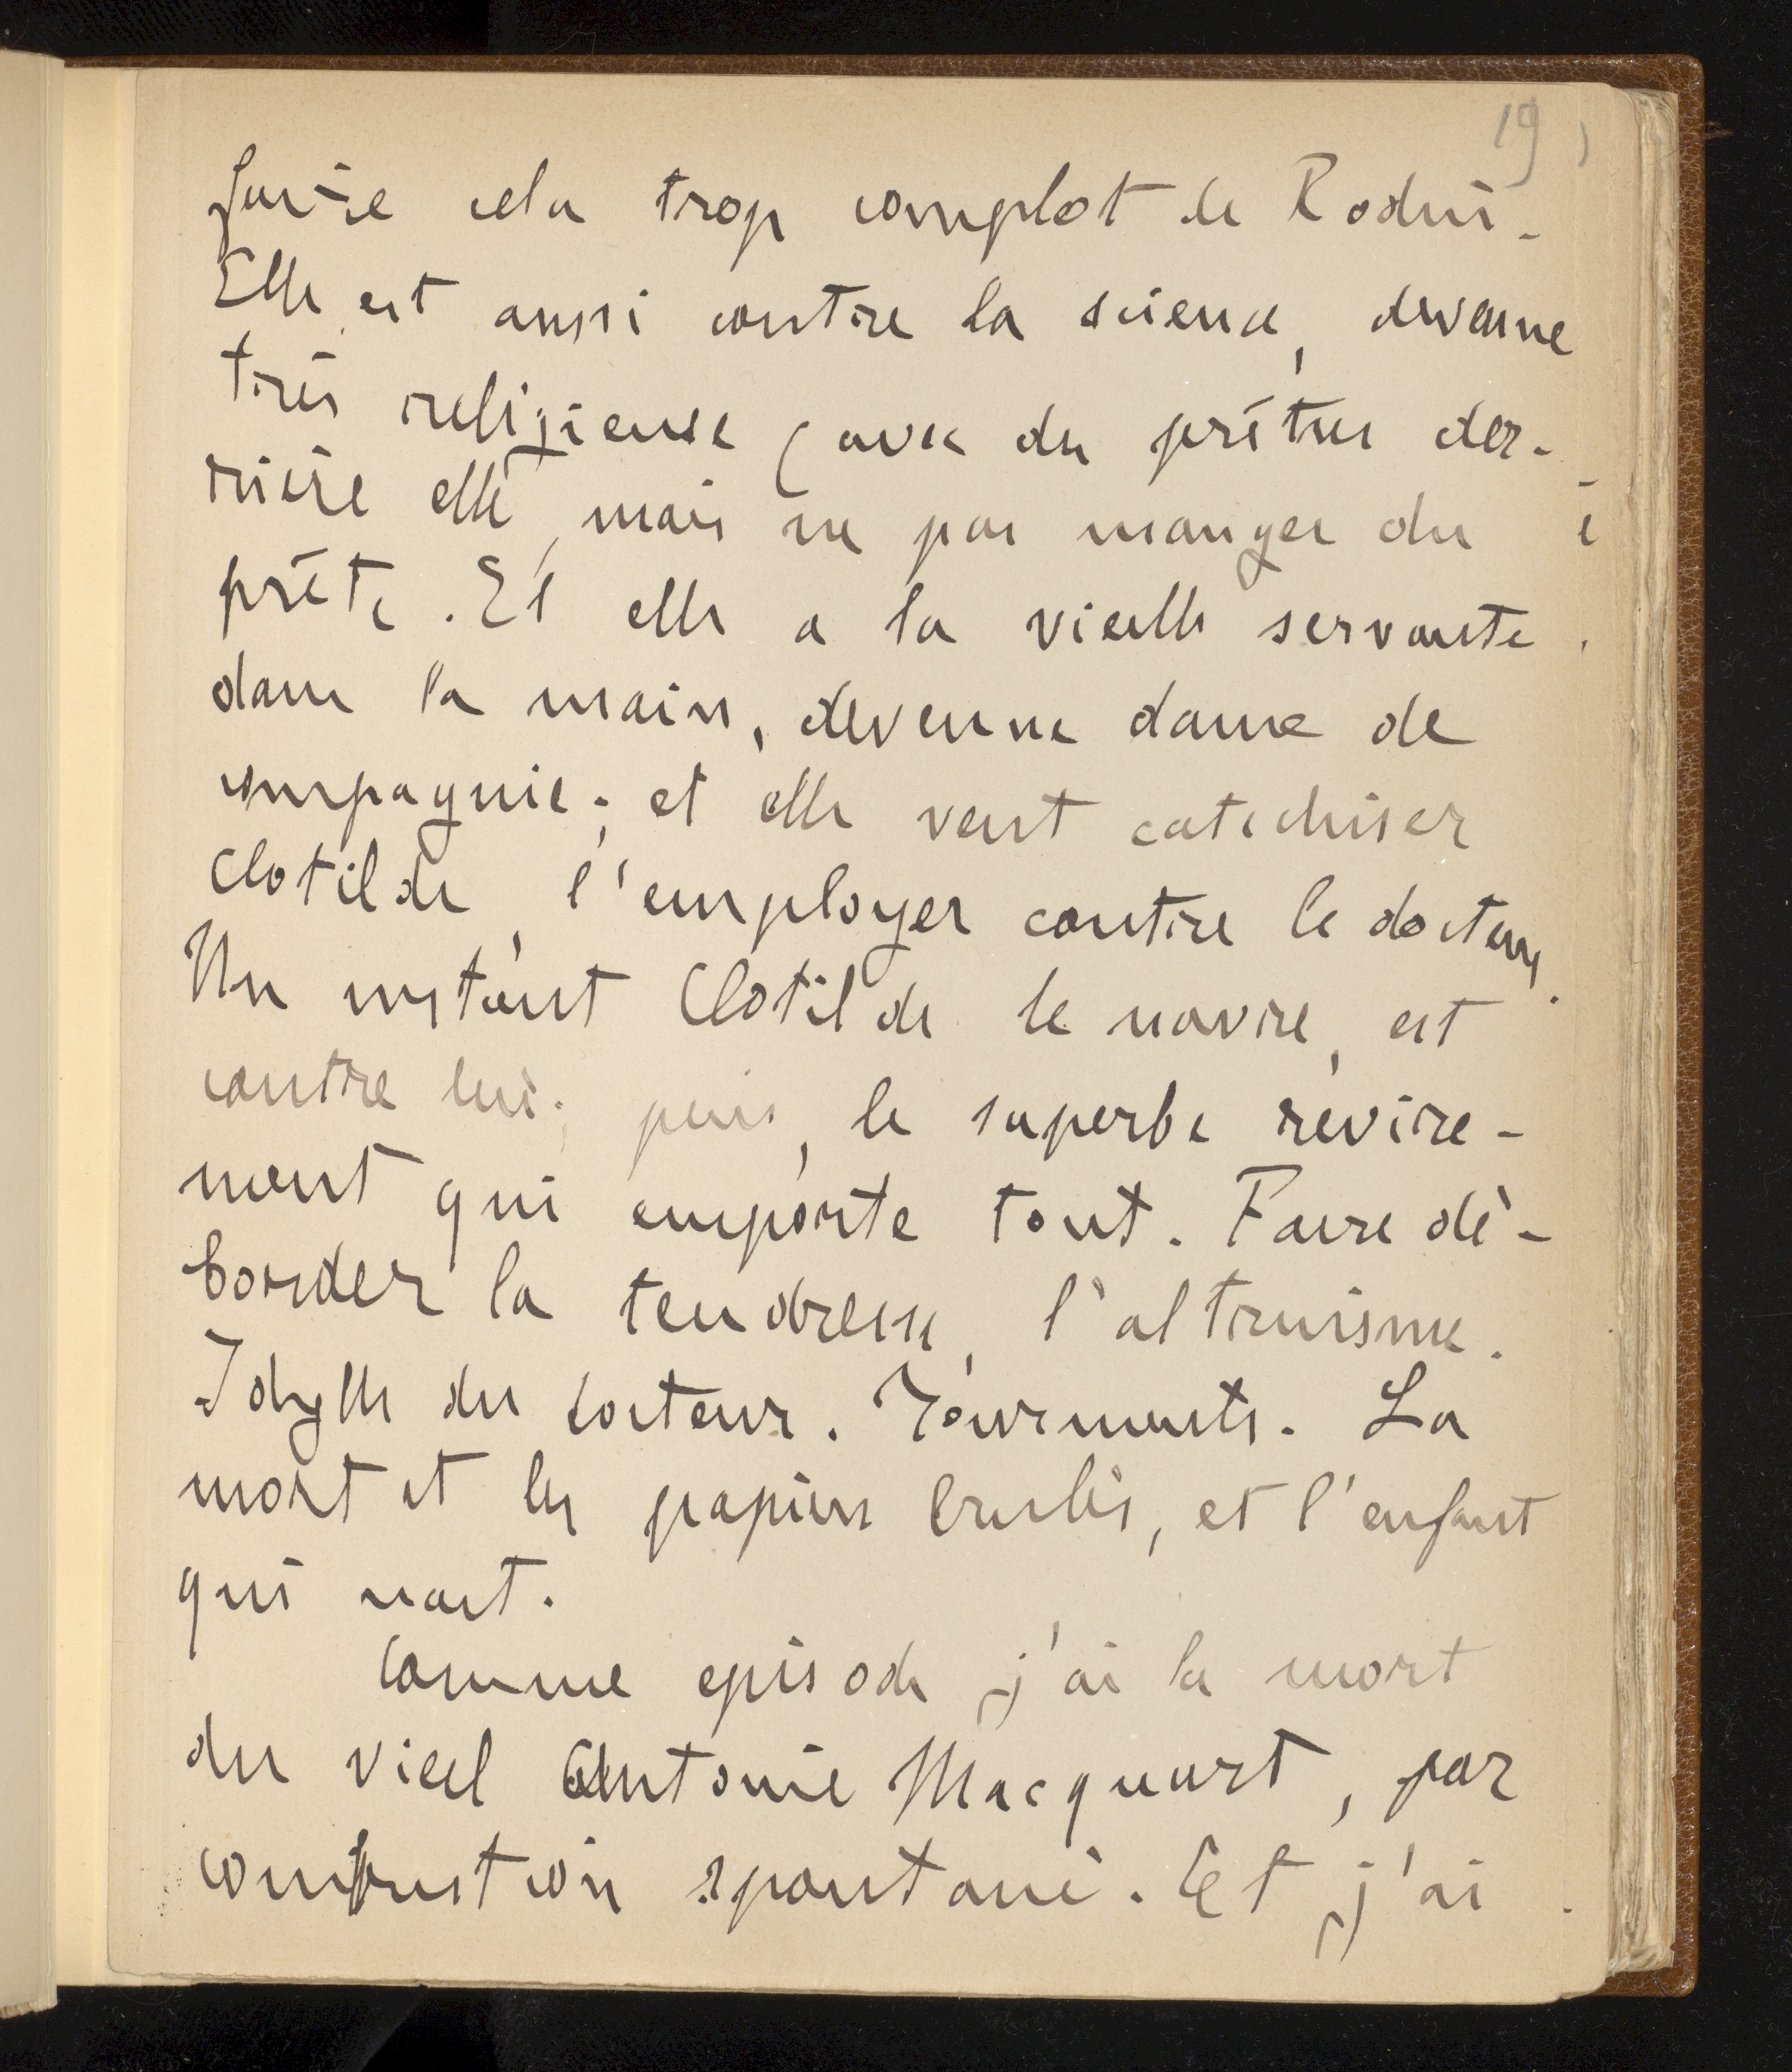 19
faire cela trop complot de Rodin.
Elle est aussi contre la science, devenue
très religieuse (avec des prêtres der-
rière elle, mais ne pas manger du
prêtre. Et elle a la vieille servante
dans la main, devenue dame de
compagnie; et elle veut catechiser
Clotilde, l'employer contre le docteur.
Un instant Clotilde le navre, est
contre lui; puis, le superbe revire-
ment qui emporte tout. Faire dé-
border la tendresse, l'altruisme.
Idylle du docteur. Tourments. La
mort et les papiers brulés, et l'enfant
qui nait.
Comme episode j'ai la mort
du vieil Antoine Macquart, par
combustion spontané. Et j'ai